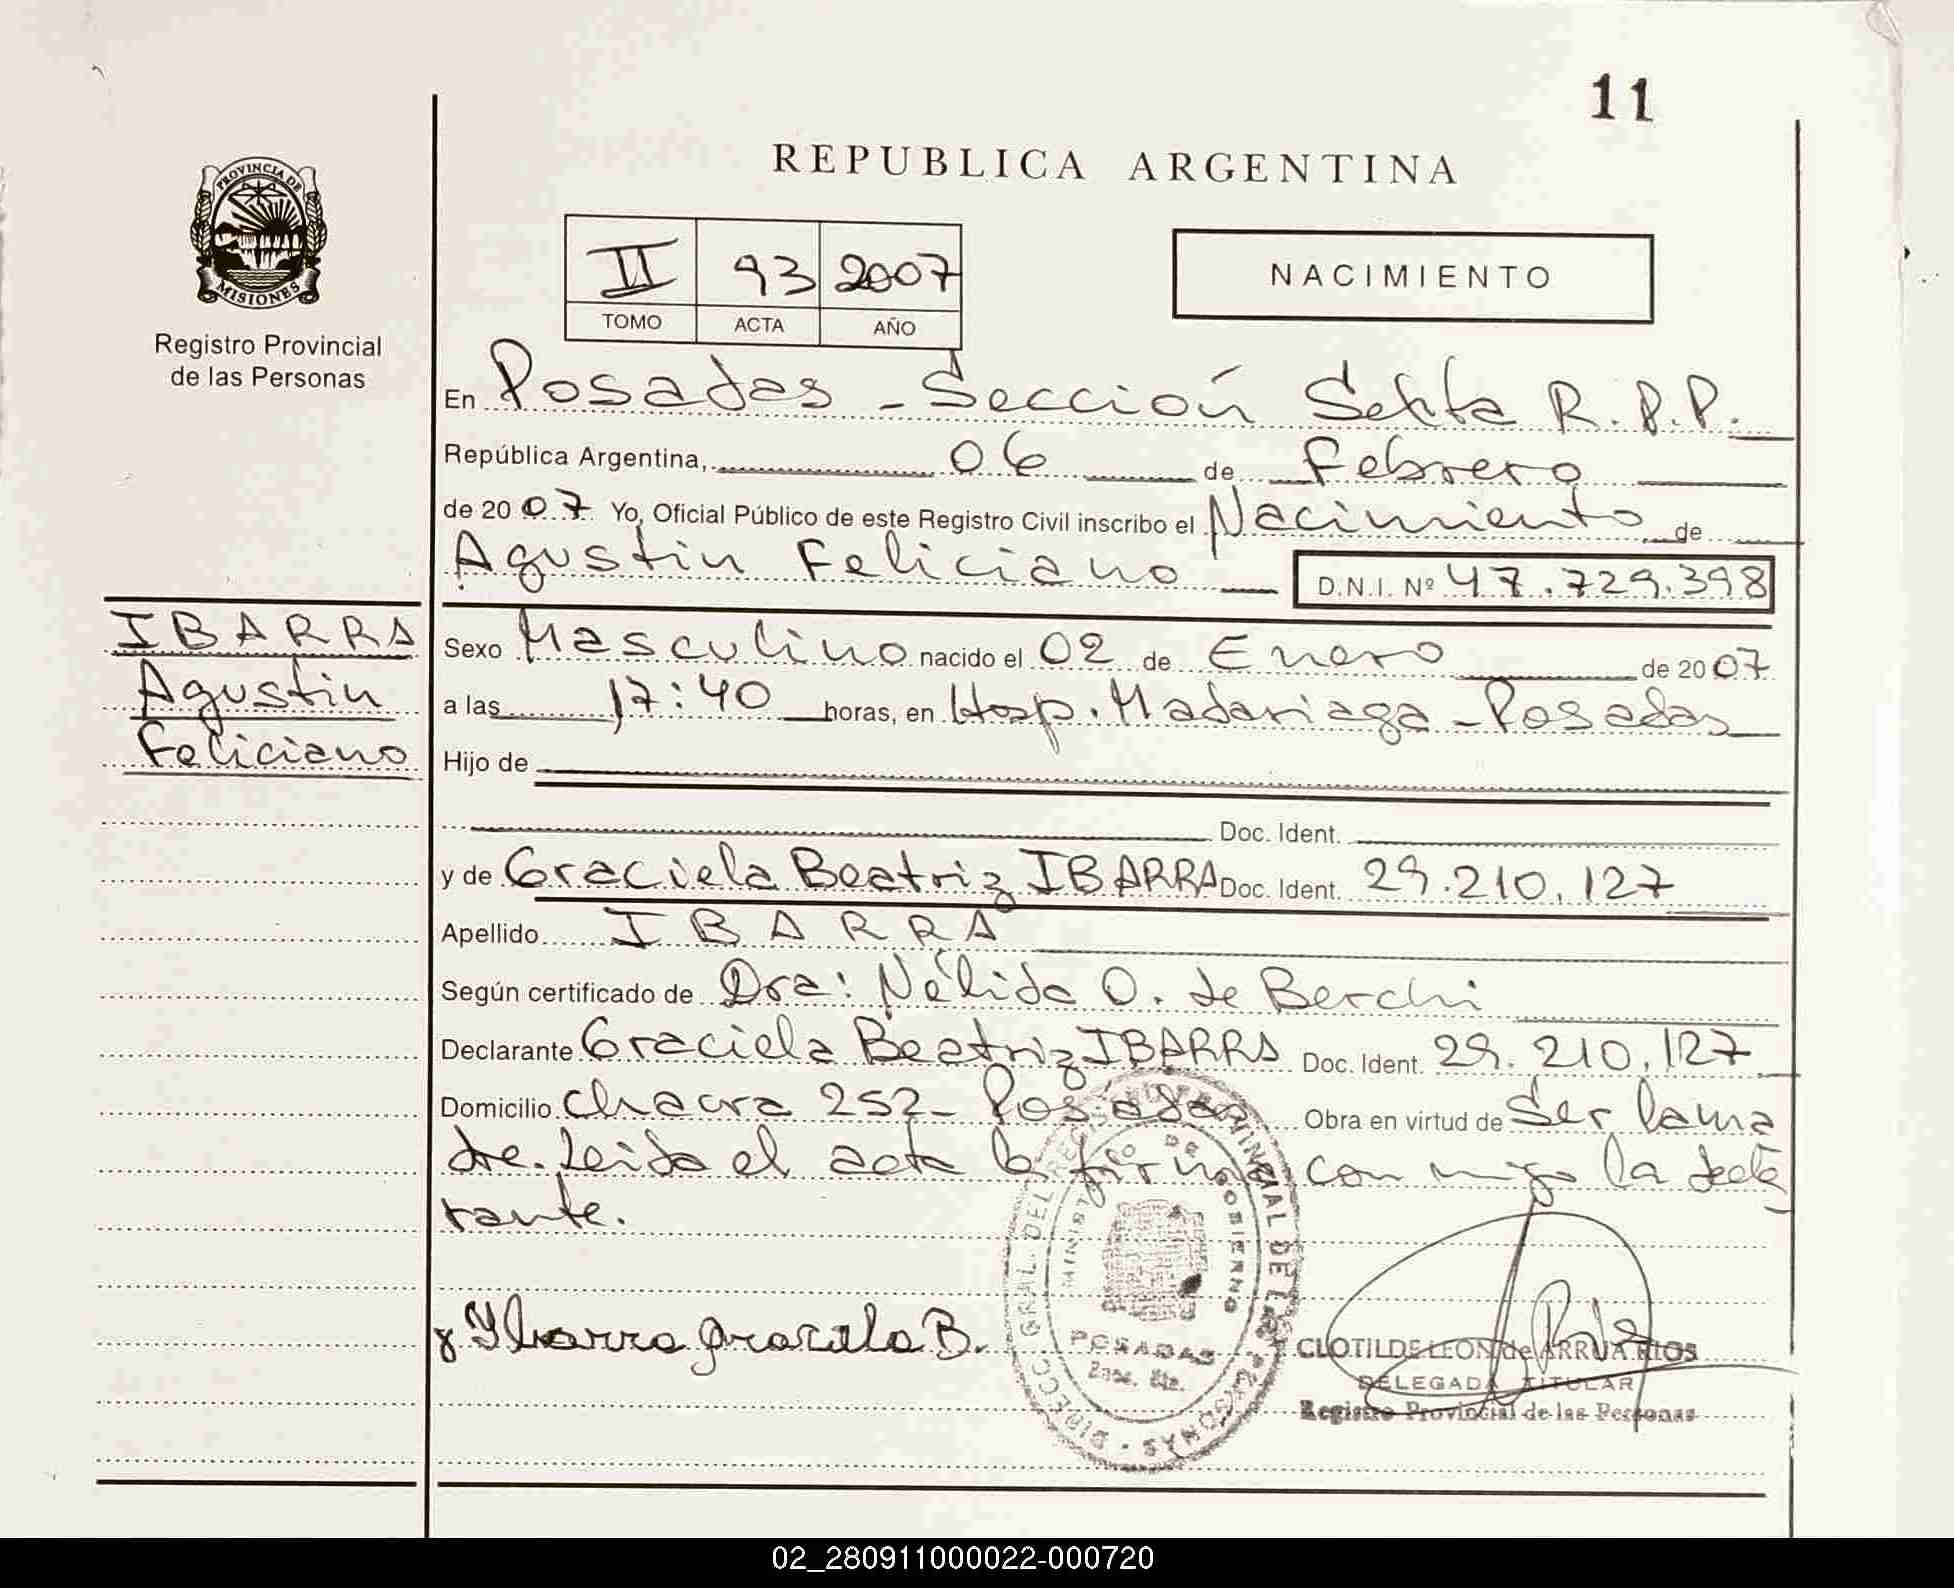 11
REPUBLICA ARGENTINA
PROVINCIA DE
MISIONES
Registro Provincial
de las Personas
II 93 2007
TOMO ACTA AÑO
NACIMIENTO
En Posadas - Sección Sexta R.P.P.
República Argentina, 06 de Febrero
de 2007 Yo, Oficial Público de este Registro Civil inscribo el Nacimiento de
Agustin Feliciano D.N.I. Nº 47.729.398
IBARRA
Agustin
Feliciano
Sexo Masculino nacido el 02 de Enero de 2007
a las 17:40 horas, en Hosp. Madariaga - Posadas
Hijo de
Doc. Ident.
y de Graciela Beatriz IBARRA Doc. Ident. 29.210.127
Apellido IBARRA
Según certificado de Dra: Nélida O. de Berchi
Declarante Graciela Beatriz IBARRA Doc. Ident. 29.210.127
Domicilio Chacra 252 - Posadas Obra en virtud de Ser la ma
dre. Leida el acta la firma con migo la decla
rante.
Ibarra Graciela B.
DIRECC. GRAL. DEL REGISTRO PROVINCIAL DE LAS PERSONAS
MINISTERIO DE GOBIERNO
POSADAS
CLOTILDE LEON de ARRUA RIOS
DELEGADA TITULAR
Registro Provincial de las Personas
02_280911000022-000720